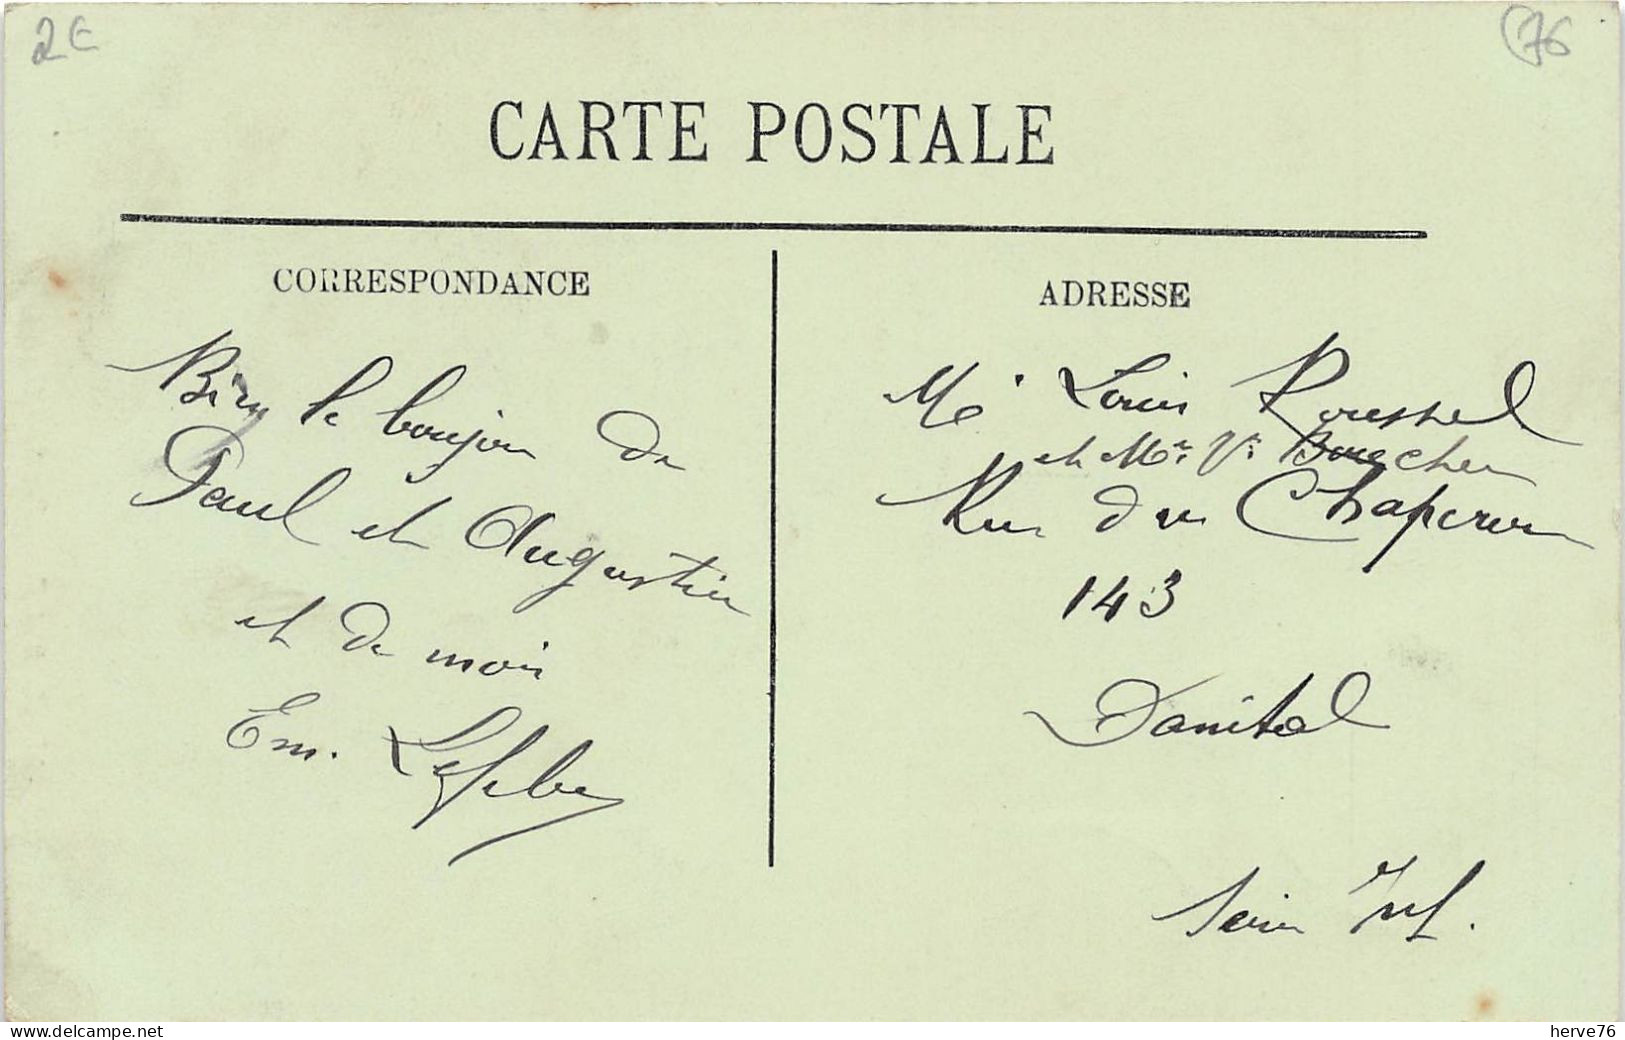 2€
76
CARTE POSTALE
CORRESPONDANCE
Bien le bonjour de
Paul et Augustin
et de moi
Em. Lefebv
ADRESSE
Mr Louis Roussel
et Mme Ve Boucher
Rue du Chaperon
143
Darnétal
Seine Inf.
herve76